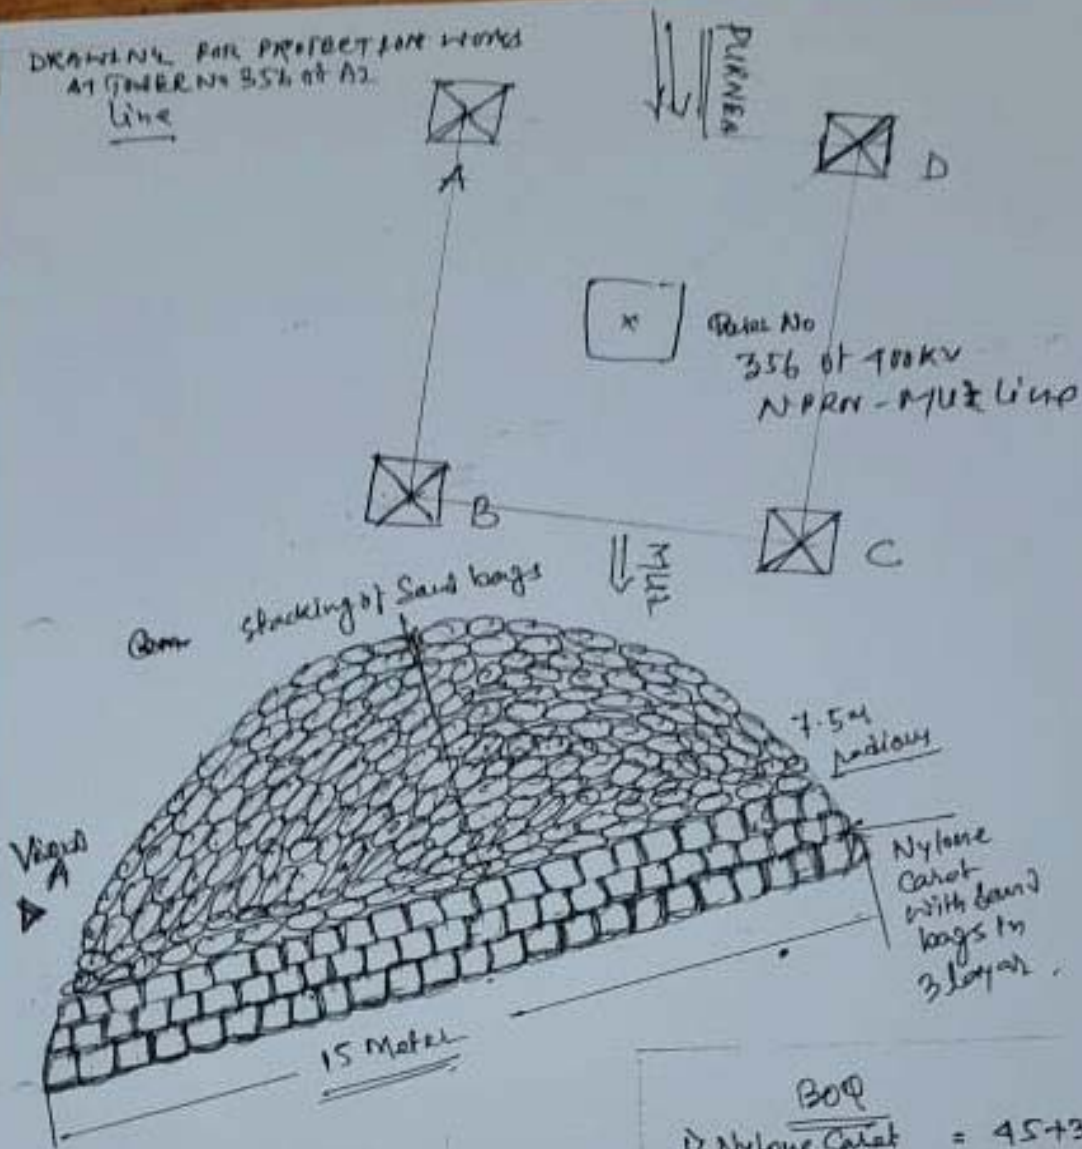 DRAWING FOR PROTECTION WORKS
AT TOWER No 356 of A2
Line
PURNEA
A
D
Tower No
356 of 400KV
NPRN - MUZ Line
B
C
MUZ
stacking of Sand bags
7.5M
radious
View
A
Nylone
Carat
with Sand
bags in
3 layar.
15 Meter
BOQ
1) Nylone Carat = 45+3